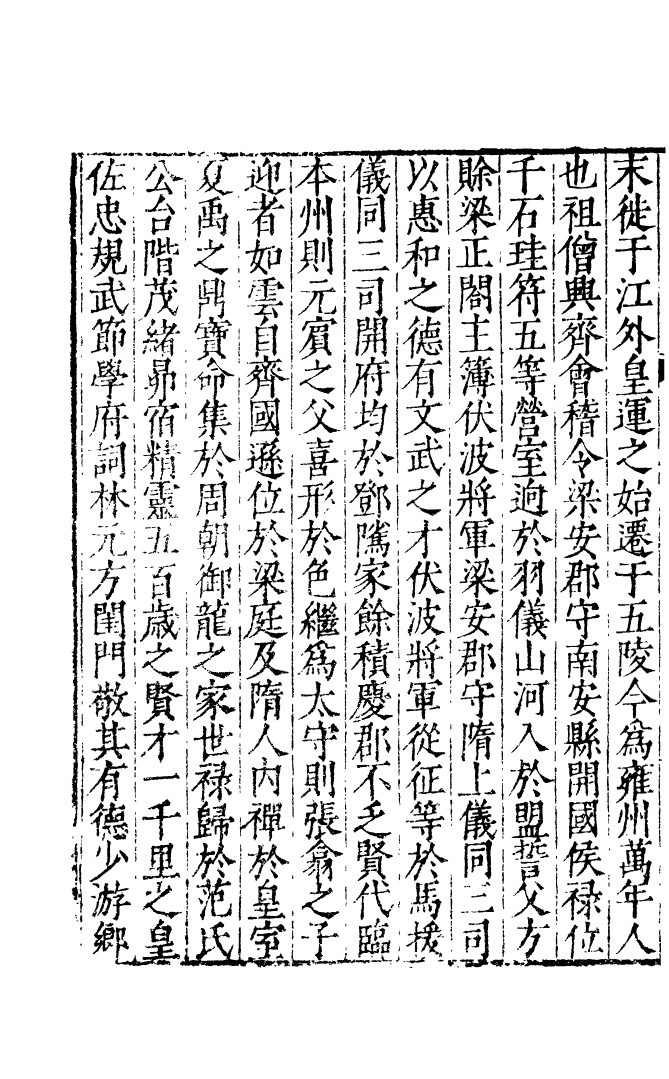 末徙于江外皇運之始遷于五陵今爲雍州萬年人
也祖僧興齊會稽令梁安郡守南安縣開國侯禄位
千石珪符五等營室逈於羽儀山河入於盟誓父方
賒梁正閤主簿伏波將軍梁安郡守隋上儀同三司
以惠和之德有文武之才伏波將軍從征等於馬援
儀同三司開府均於鄧隲家餘積慶郡不乏賢代臨
本州則元賓之父喜形於色繼爲太守則張翕之子
迎者如雲自齊國遜位於梁庭及隋人内禪於皇室
夏禹之鼎寶命集於周朝御龍之家世禄歸於范氏
公台階茂緒昴宿精靈五百歲之賢才一千里之皇
佐忠規武節學府詞林元方閨門敬其有德少游鄉